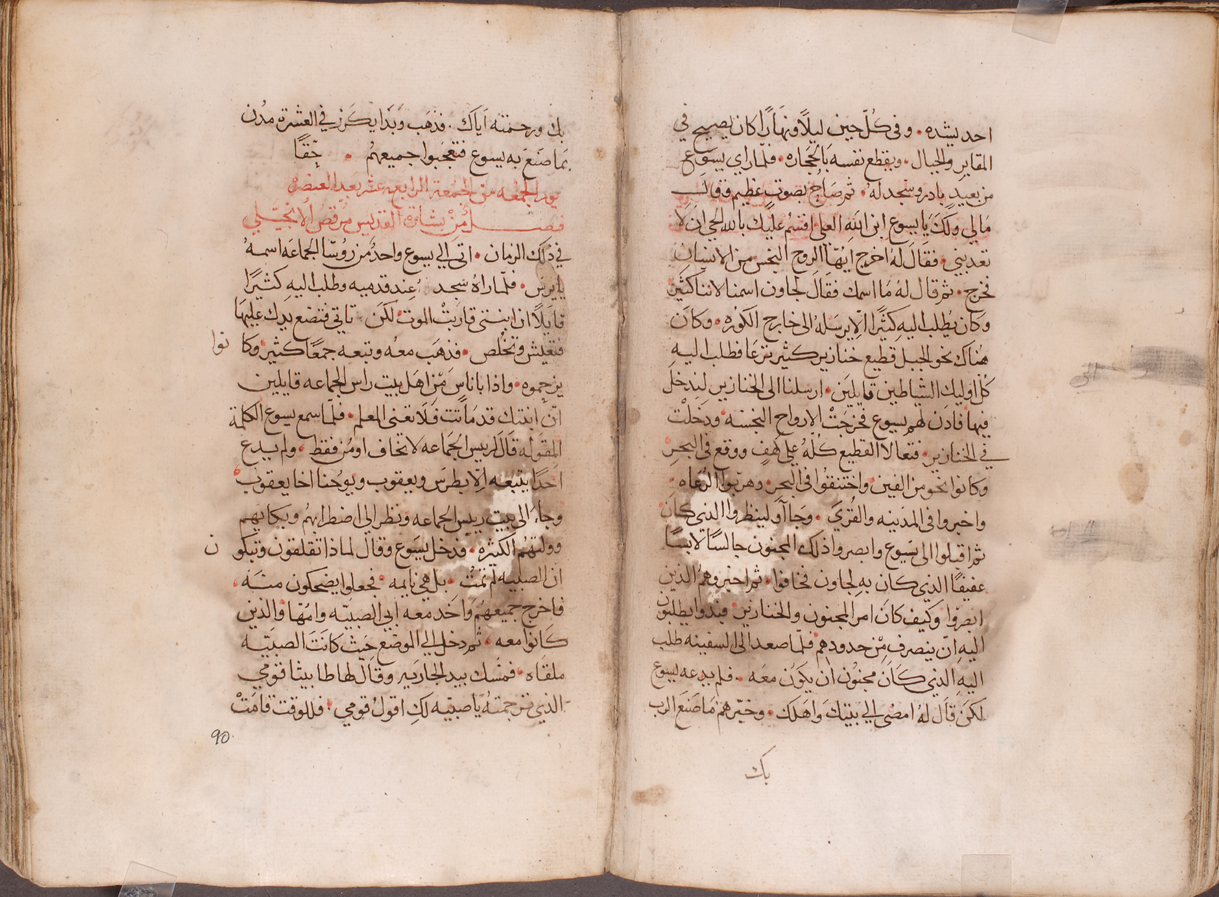 احد يشده . وفي كل حين ليلاً ونهاراً كان يصيح في
المقابر والجبال . ويقطع نفسه بالحجاره . فلما راي يسوع
من بعيد بادر وسجد له . ثم صاح بصوت عظيم وقال
مالي ولك يا يسوع ابن الله العلي اقسم عليك بالله الحي ان لا
تعذبني . فقال له اخرج ايها الروح النجس من الانسان
فخرج . ثم قال له ما اسمك فقال لجاون اسمنا لاننا كثير
وكان يطلب اليه كثيرًا الا يرسله الى خارج الكوره . وكان
هناك نحو الجبل قطيع خنازير كثير يرعا فطلب اليه
كل اوليك الشياطين قايلين . ارسلنا الى الخنازير لندخل
فيها فاذن لهم يسوع فخرجت الارواح النجسه ودخلت
في الخنازير . فتعالا القطيع كله على كهف ووقع في البحر
وكانوا نحو من الفين . واختنقوا في البحر . وهربوا الرعاه .
واخبروا في المدينه والقري . وجاآ ولينظروا الذي كان
ثم اقبلوا الى يسوع وابصروا ذلك المجنون جالسًا لابسًا
عفيفًا الذي كان به لجاون فخافوا . ثم اخبروهم الذين
ابصروا وكيف كان امر المجنون والخنازير . فبدوا يطلبون
اليه ان ينصرف من حدودهم فلما صعد الى السفينه طلب
اليه الذي كان مجنون ان يكون معه . فلم يدعه يسوع
لكن قال له امضى الى بيتك واهلك . وخبرهم ما صنع الرب
بك
بك ورحمته اياك . فذهب وبدا يكرز في العشرة مدن
بما صنع به يسوع فتعجبوا جميعهم . حقًا
يوم الجمعه من الجمعة الرابعه عشر بعد العنصره
فصل من بشارة القديس مرقص الانجيلي
في ذلك الزمان . اتى الى يسوع واحد من روسا الجماعه اسمه
يايرس . فلما راه سجد عند قدميه وطلب اليه كثيرًا
قايلًا ان ابنتى قاربت الموت لكن تاتي فتضع يدك عليها
فتعيش وتخلص . فذهب معه وتبعه جمعًا كثير وكا نوا
يزحموه . واذا باناس من اهل بيت راس الجماعه قايلين
ان ابنتك قد ماتت فلا تعنى المعلم . فلما سمع يسوع الكلمة
المقوله قال لريس الجماعه لا تخاف اومن فقط . ولم يدع
احدًا يتبعه الا بطرس ويعقوب ويوحنا اخا يعقوب
وجاء الى بيت رييس الجماعه ونظر الى اضطرابهم وبكايهم
وولتهم الكثيره . فدخل يسوع وقال لماذا تقلقون وتبكو ن
ان الصبيه لم تمت . بل هي نايمه . فجعلوا يضحكون منه .
فاخرج جميعهم واخد معه ابي الصبيه وامها والذين
كانوا معه . ثم دخل الى الموضع حيث كانت الصبيه
ملقاه . فمسك بيد الجاريه وقال لها طابيثا قومي
الذي ترجمته يا صبيه لك اقول قومي . فللوقت قامت
90